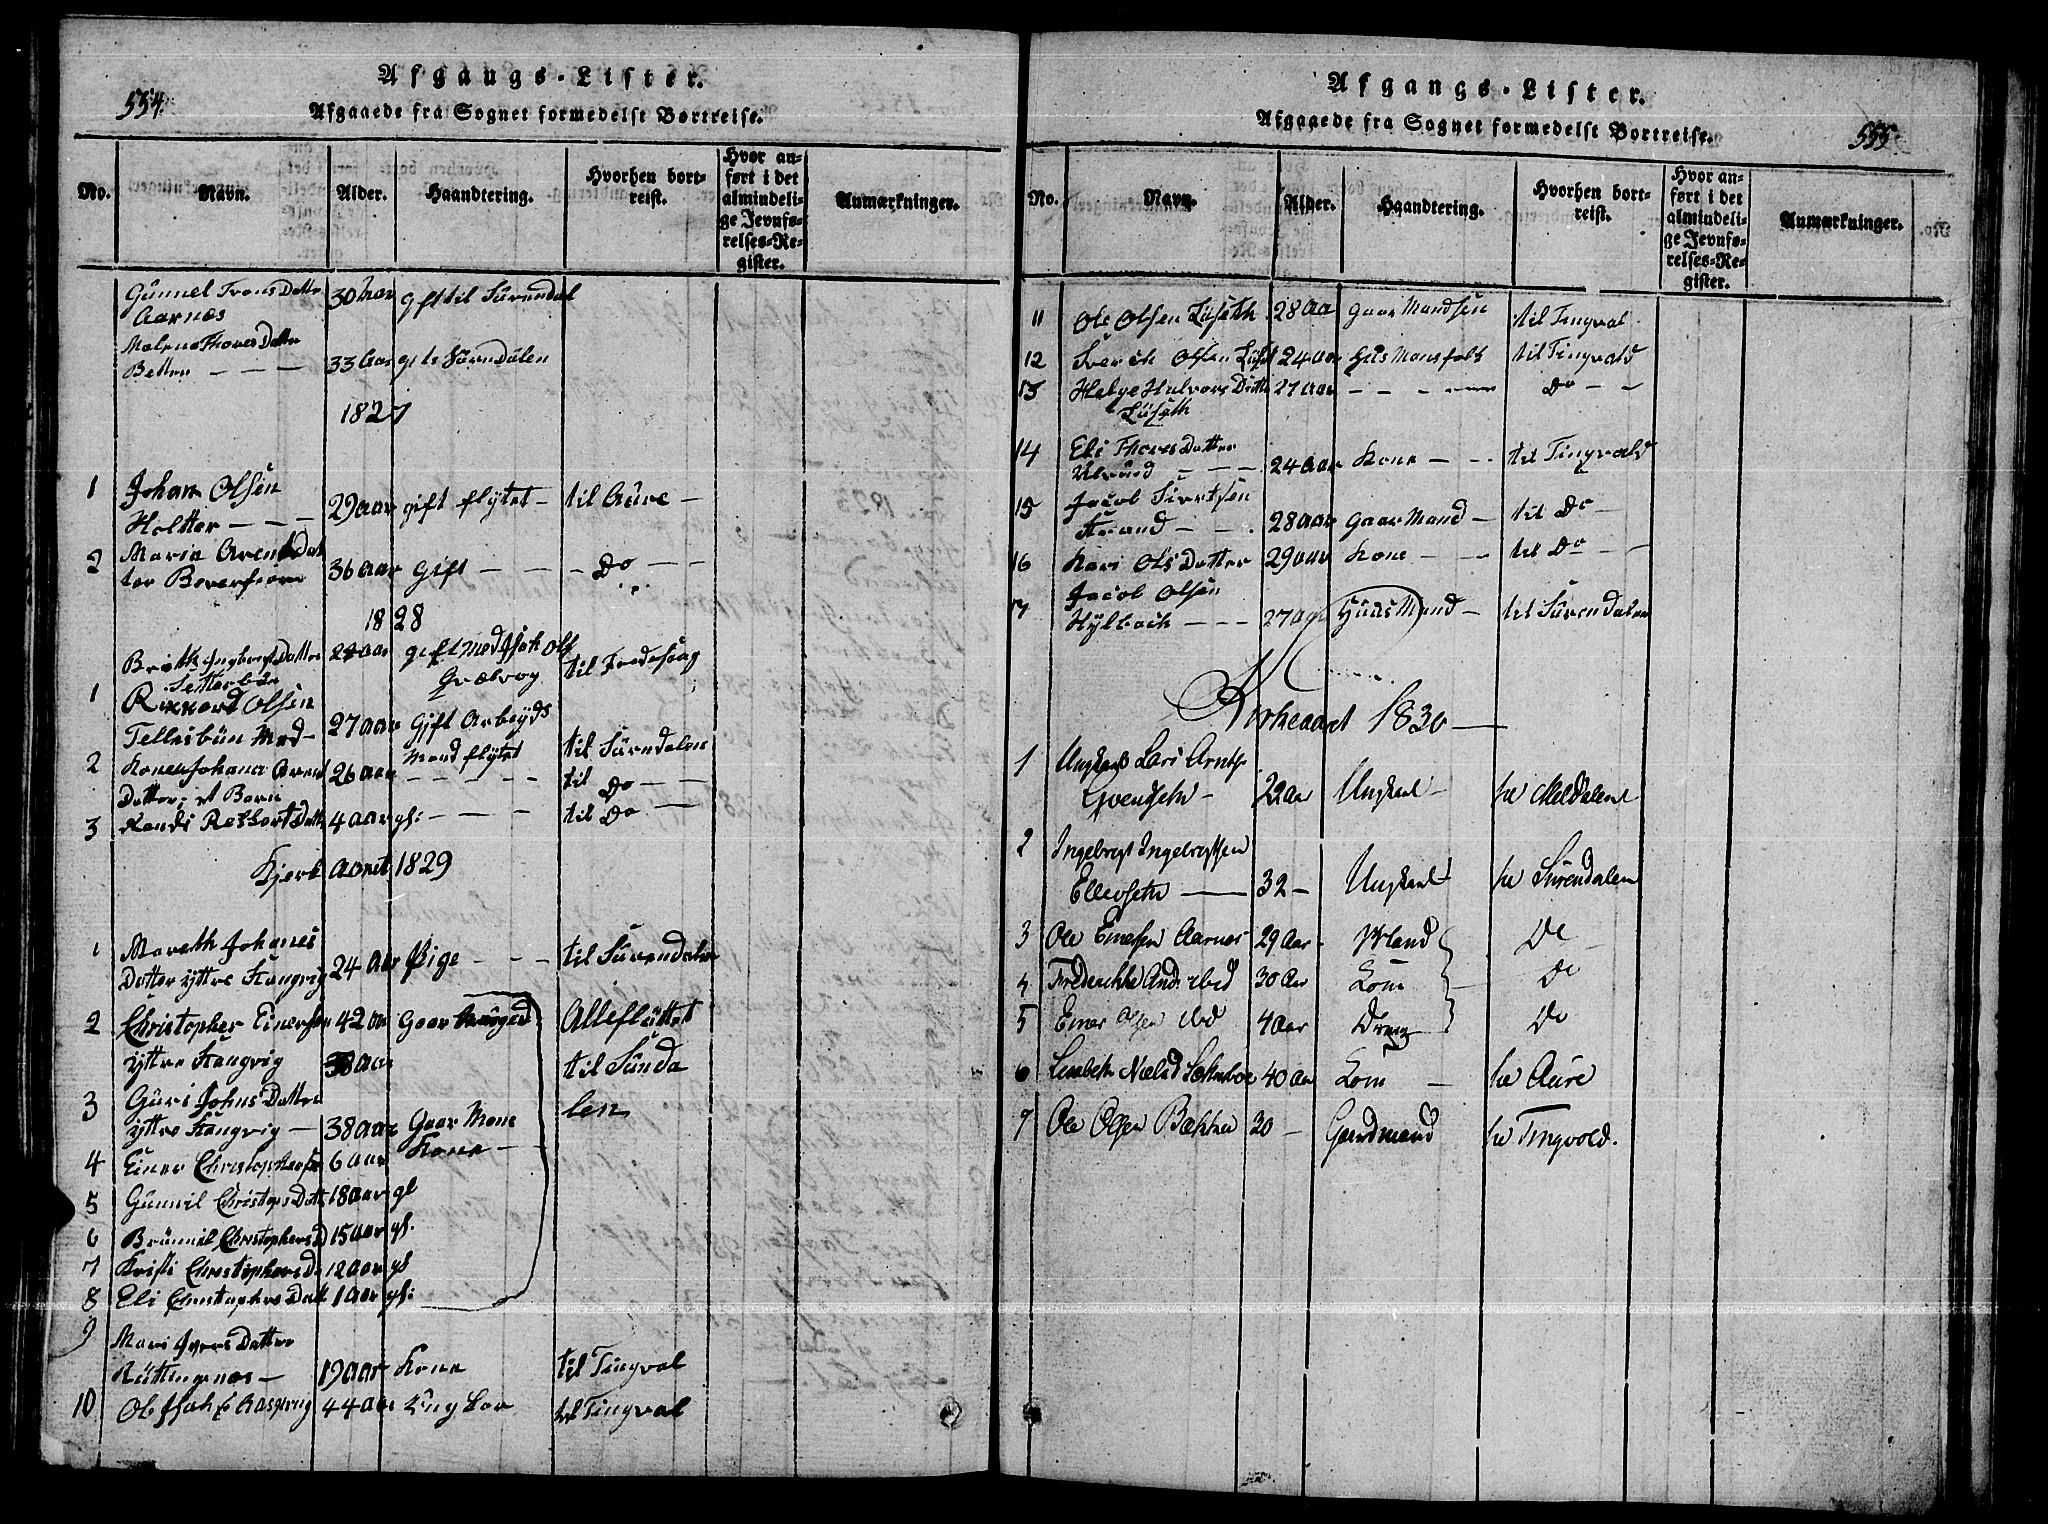 554.
Afgangs-Lister.
Afgaaede fra Sognet formedelst Bortreise.
No. Navn. Alder. Haandtering. Hvorhen bortreist. Hvor anført i det almindelige Jevnførelses-Register. Anmærkninger.
Gunnel Trons Dattr 30 aar gift til Surendal
Aarnæs
Malene Thores Datter
Betten — — — 33 aar Surndalen
1827
1 Johan Olsen
Holtter — — — 29 aar gift flytet — til Aure —
2 Maria Arents Dat
ter 36 aar Gift — — — Do — —
1828
Dattr 24 aar gift med Isak Ols til
1 Olsen
Tellesbün Med — 27 aar Gift Arbeyds
Mand flytet til Sürndalen
2 Konen Johana Arent 26 aar — — — — til Do —
Datter, et Barn
3 4 aar — — — til Do —
Kjerk Aaret 1829
1 Mareth Johanes
Datter yttre Stangvig 24 aar Pige — — — til Surendalen
2 Christopher Einersen 42 aar Gaar Alle flüttet
yttre Stangvig til Sunda
3 Guri Johns Datter len
yttre Stangvig — 38 aar Gaar Mans
Kone —
4 Einer Christophersen 6 aar
5 Gunnil Christops Datt 18 aar
6 Brünnil Christophersd 15 aar
7 Kristi Christophersd 12 aar
8 Eli Christophers Datt 1 aar
9 Mari Ivers Datter
Rüttingsnæs — 19 aar Kone til Tingval
10 Ole Isak 44 aar Ung Kar til Tingval
555.
Afgangs-Lister.
Afgaaede fra Sognet formedelst Bortreise.
No. Navn. Alder. Haandtering. Hvorhen bortreist. Hvor anført i det almindelige Jevnførelses-Register. Anmærkninger.
11 Ole Olsen Lüseth 28 Aa Gaar Mandsen til Tingval
12 Olsen 24 aar Hüs Mansfolk til Tingvald
13 Helge Halvors Datter 27 aar — — — Do — —
Lüseth
14 Eli Thores Datter
Ulvünd — — — 24 aar Kone — — til Tingvald
15 Jacob Sivertsen
Strand — — 28 aar Gaar Mand — til Do —
16 Kari Ols Datter 29 aar Kone — — til Do — —
Jacob Olsen
17 Hylbach — — — 27 aar Huus Mand — til Sürendalen
Kirkeaaret 1830 —
1 Ungkarl Lars Arntsen
22 Aar Ungkarl — til Meldalen
2 Ingebrigt Ingebrigtsen
Ellevseth — 32 — Ungkarl til Surendalen
3 Ole Einersen Aarnæs 29 Aar — Mand Do —
4 Frederikke And. ibid 30 Aar Kone — Do
5 Einer Olsen ibid 4 Aar Dreng Do
6 Lisbeth Nielsd 40 Aar Kone — til Aure
7 Ole Olsen Bækken 20 — Gaardmand til Tingvold.